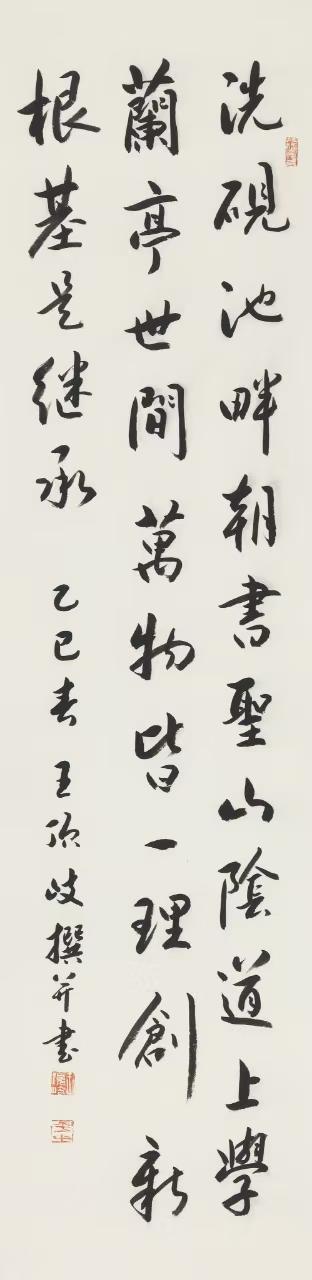 洗硯池畔朝書聖山陰道上學
蘭亭世間萬物皆一理創新
根基是继承
乙巳春王頌歧撰并書